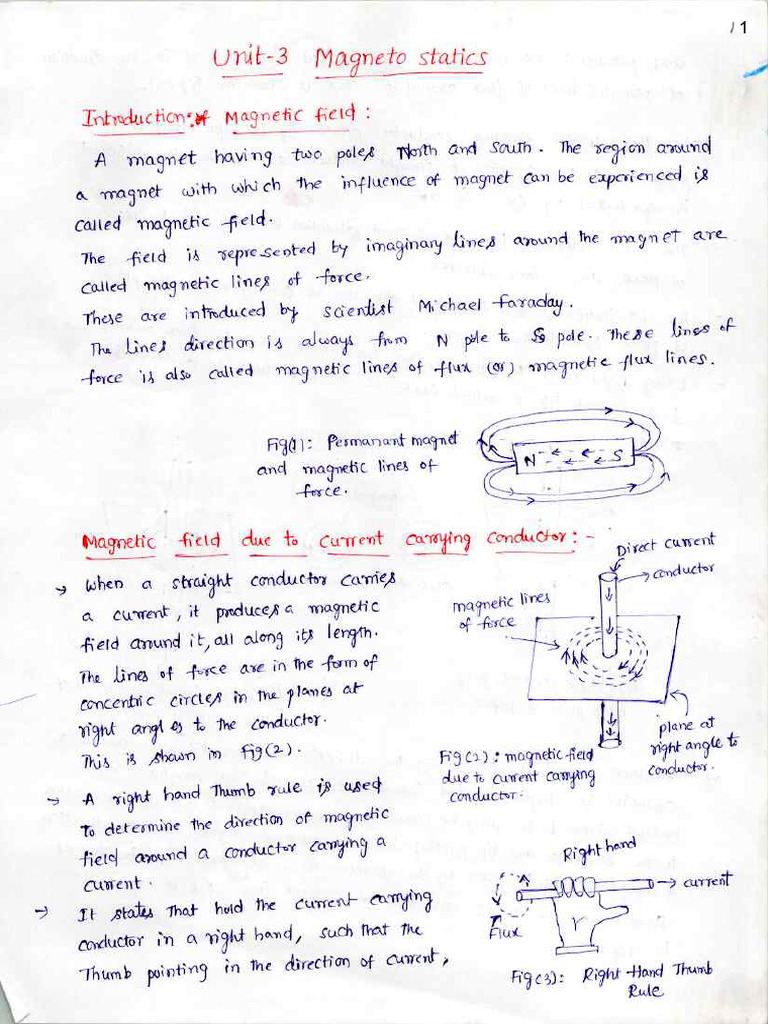 11
Unit-3 Magneto statics
Introduction: Magnetic field:
A magnet having two poles North and South. The region around
a magnet with which the influence of magnet can be experienced is
called magnetic field.
The field is represented by imaginary lines around the magnet are
called magnetic lines of force.
These are introduced by scientist Michael Faraday.
The Lines direction is always from N pole to S pole. These lines of
force is also called magnetic lines of flux (or) magnetic flux lines.
Fig(1): Permanant magnet
and magnetic lines of
force.
N S
Magnetic field due to current carrying conductor: -
Direct current
conductor
magnetic lines
of force
plane at
right angle to
conductor.
Fig(2): magnetic field
due to current carrying
conductor.
→ When a straight conductor carries
a current, it produces a magnetic
field around it, all along its length.
The lines of force are in the form of
concentric circles in the planes at
right angles to the conductor.
This is shown in Fig(2).
→ A right hand Thumb rule is used
to determine the direction of magnetic
field around a conductor carrying a
current.
→ It states That hold the current carrying
conductor in a right hand, such that the
Thumb pointing in the direction of current,
Right hand
→ current
Flux
Fig(3): Right Hand Thumb
Rule